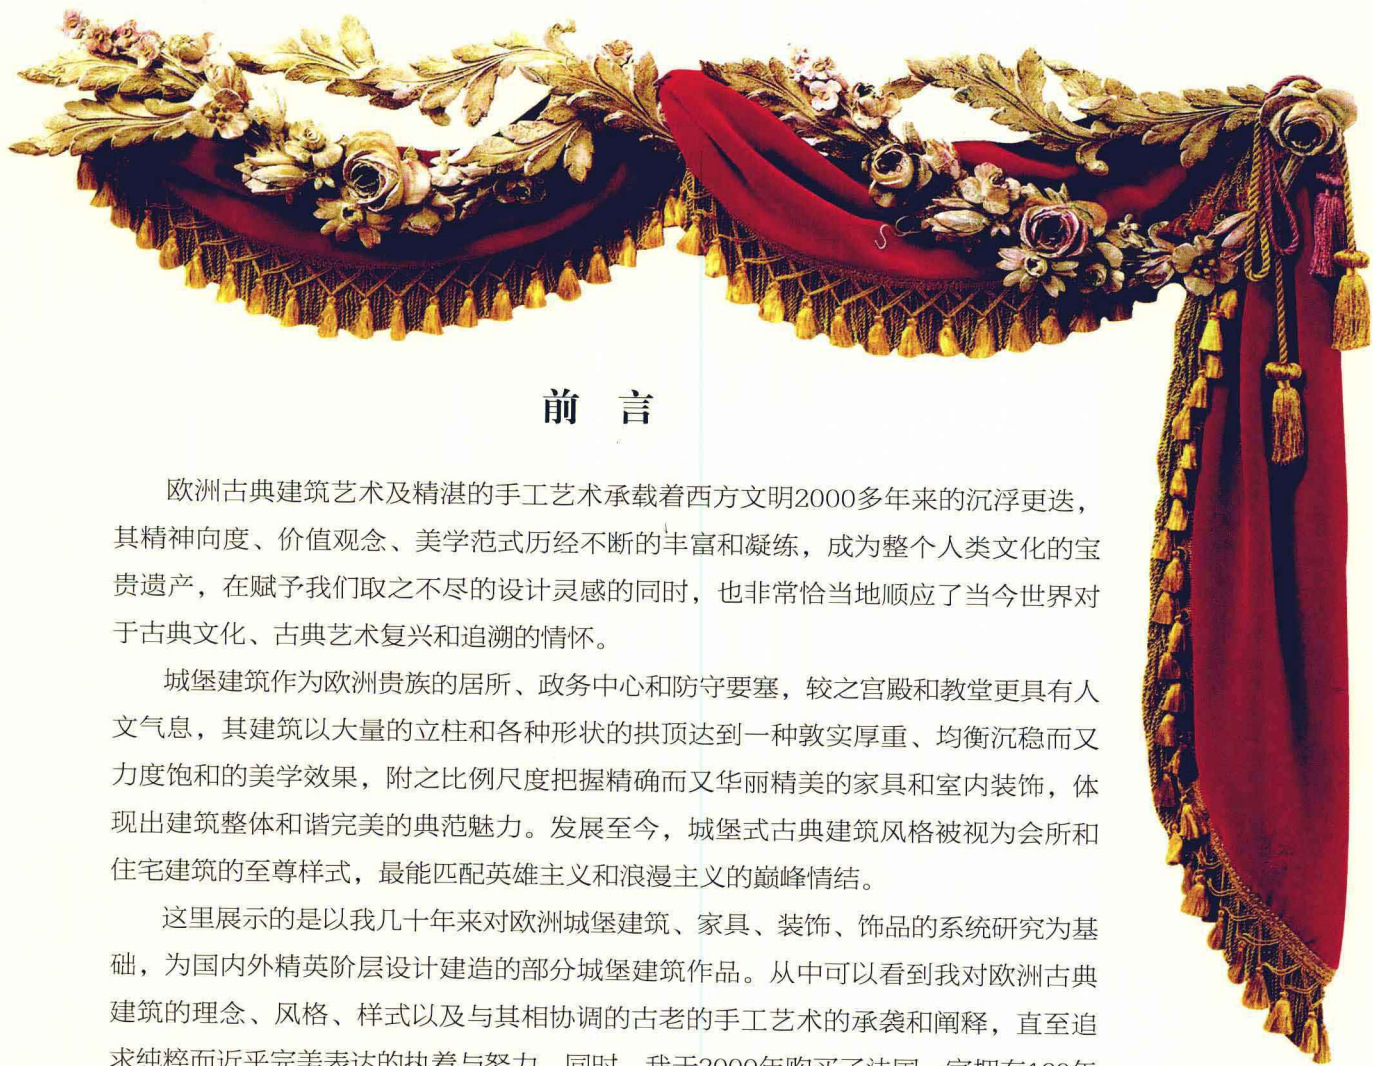 前 言
欧洲古典建筑艺术及精湛的手工艺术承载着西方文明2000多年来的沉浮更迭，
其精神向度、价值观念、美学范式历经不断的丰富和凝练，成为整个人类文化的宝
贵遗产，在赋予我们取之不尽的设计灵感的同时，也非常恰当地顺应了当今世界对
于古典文化、古典艺术复兴和追溯的情怀。
城堡建筑作为欧洲贵族的居所、政务中心和防守要塞，较之宫殿和教堂更具有人
文气息，其建筑以大量的立柱和各种形状的拱顶达到一种敦实厚重、均衡沉稳而又
力度饱和的美学效果，附之比例尺度把握精确而又华丽精美的家具和室内装饰，体
现出建筑整体和谐完美的典范魅力。发展至今，城堡式古典建筑风格被视为会所和
住宅建筑的至尊样式，最能匹配英雄主义和浪漫主义的巅峰情结。
这里展示的是以我几十年来对欧洲城堡建筑、家具、装饰、饰品的系统研究为基
础，为国内外精英阶层设计建造的部分城堡建筑作品。从中可以看到我对欧洲古典
建筑的理念、风格、样式以及与其相协调的古老的手工艺术的承袭和阐释，直至追
求纯粹而近乎完美表达的执着与努力。同时，我于2000年购买了法国一家拥有